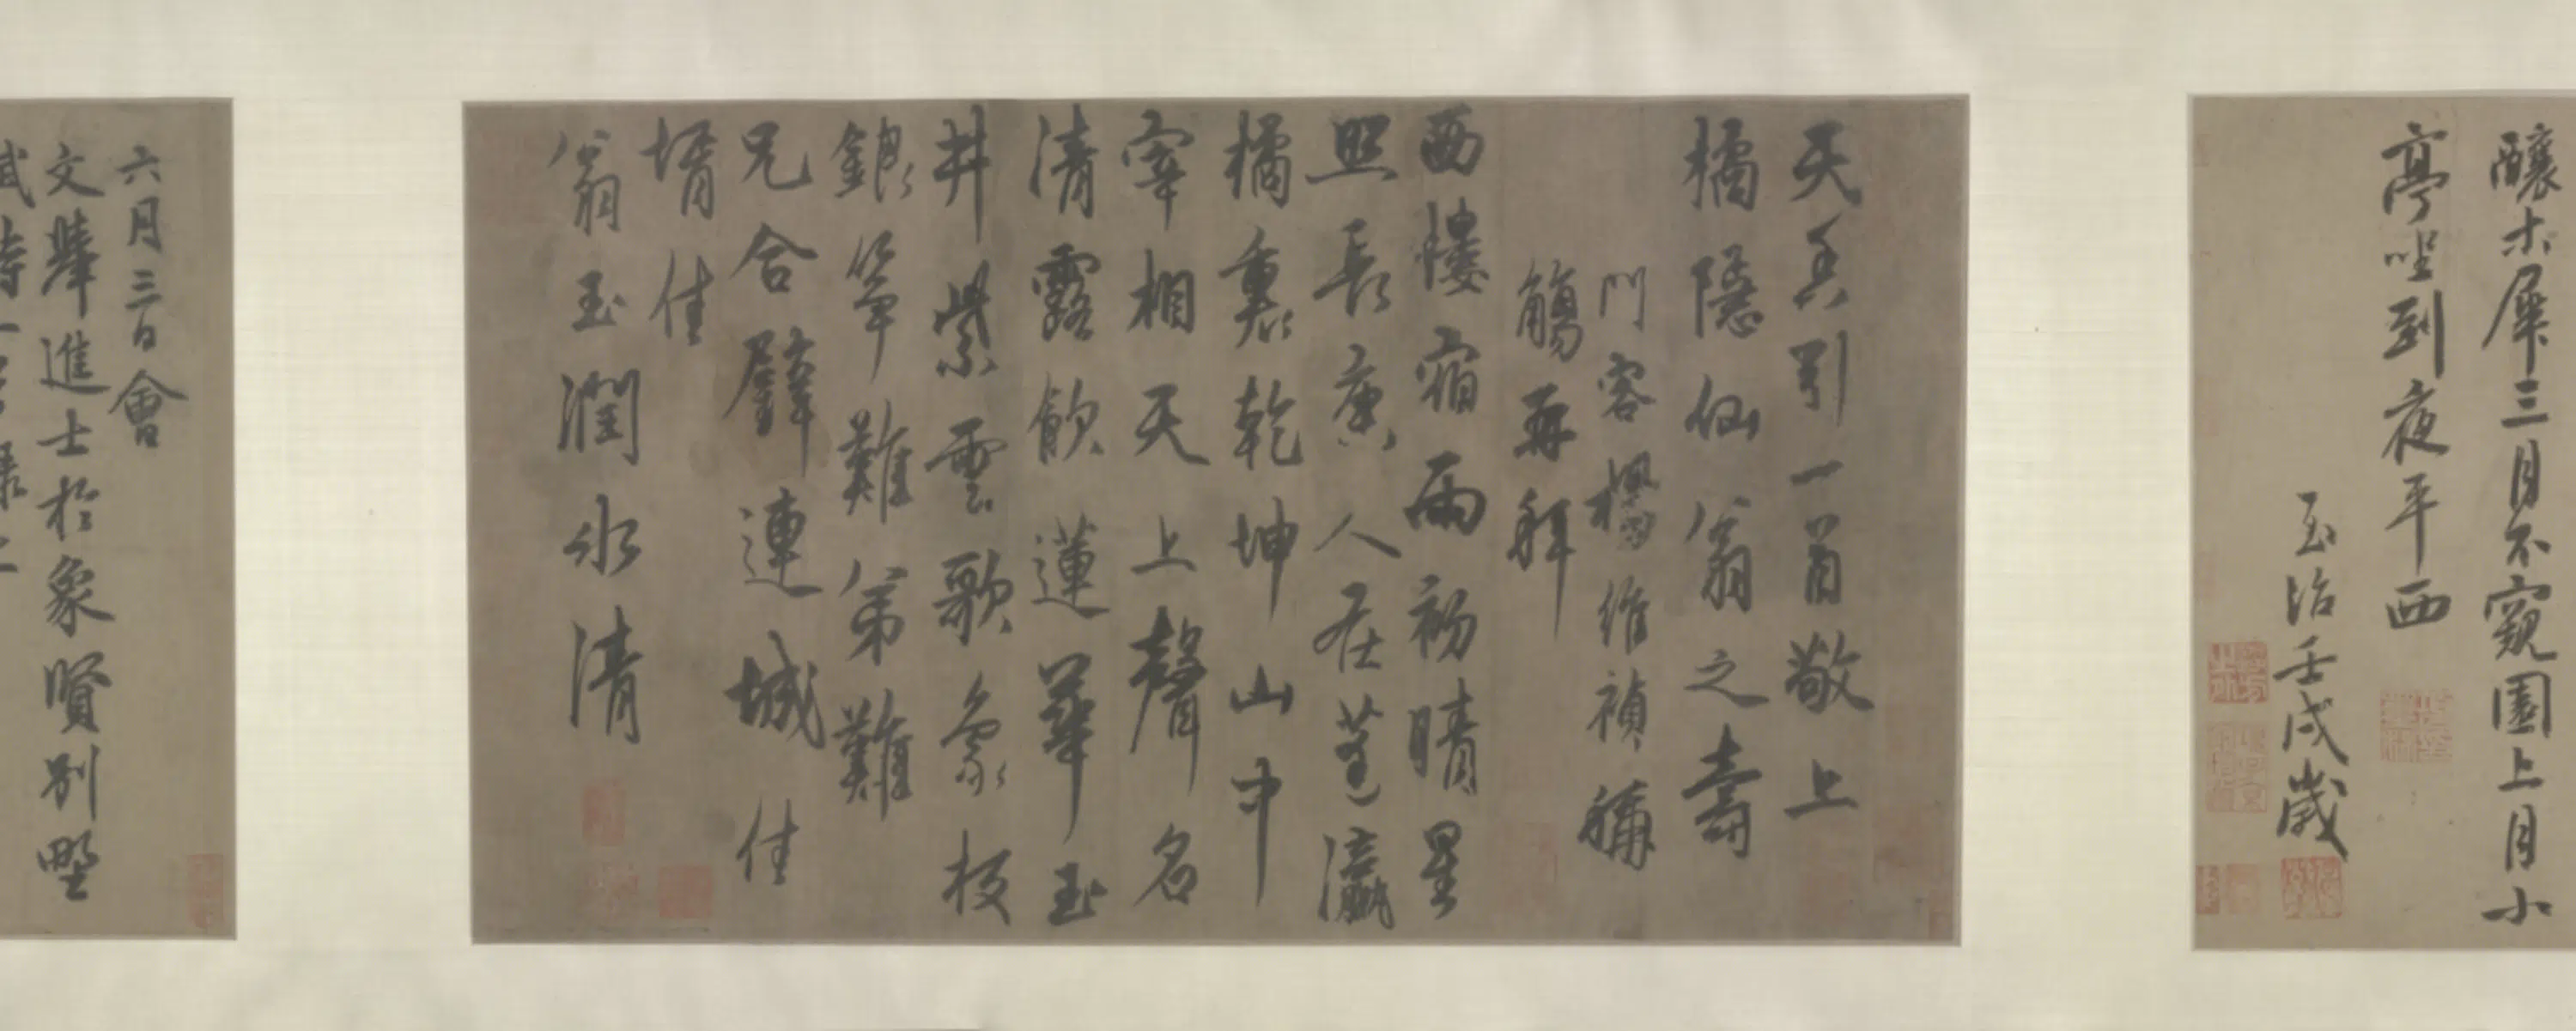 釀木犀三月不窺園上月小
亭坐到夜平西
至治壬戌歲
天香引一首敬上
橘隱仙翁之壽
門客楊維禎稱
觴再拜
西樓宿雨初晴星
照長庚人在蓬瀛
橘裏乾坤山中
宰相天上聲名
清露飲蓮華玉
井紫雲歌象板
銀箏難弟難
兄合璧連城佳
壻佳
翁玉潤冰清
六月三日會
文舉進士於象賢別墅